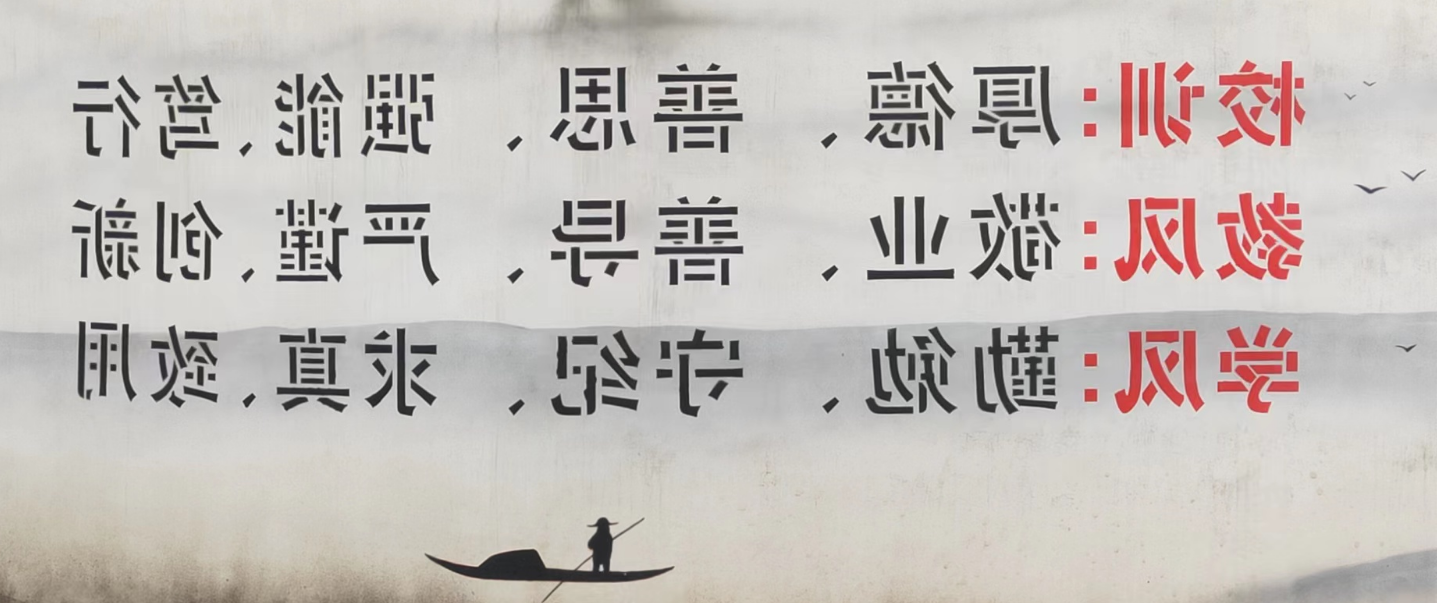 校训:厚德、善思、强能、笃行
教风:敬业、善导、严谨、创新
学风:勤勉、守纪、求真、致用